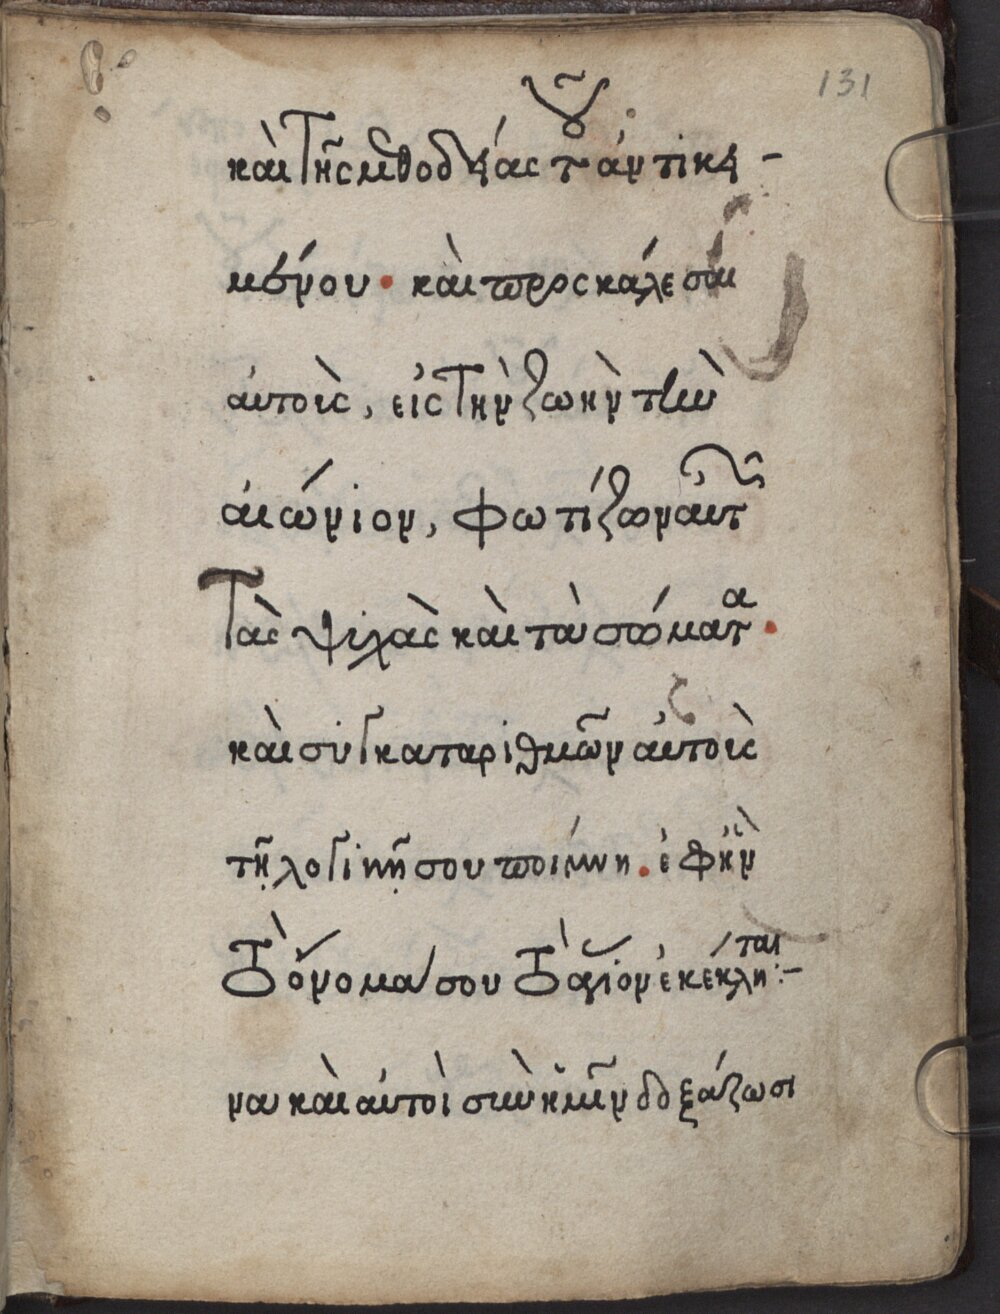 131
καὶ τῆς μεθοδείας τοῦ ἀντικει-
μένου· καὶ προσκάλεσαι
αὐτοὺς, εἰς τὴν ζωὴν τὴν
αἰώνιον, φωτίζων αὐτῶν
τὰς ψυχὰς καὶ τὰ σώματα·
καὶ συγκαταριθμῶν αὐτοὺς
τῇ λογικῇ σου ποίμνῃ. ἐφ' ἣν
τὸ ὄνομά σου τὸ ἅγιον ἐκεκληται:-
ἵνα καὶ αὐτοὶ σὺν ἡμῖν δοξάζωσι